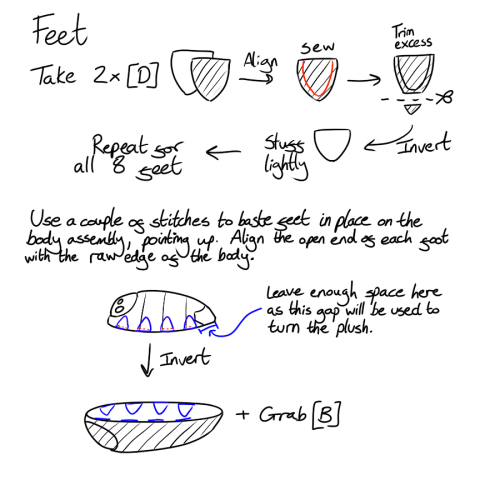 Feet
Take 2x [D]
Align
sew
Trim
excess
Invert
Stuff
lightly
Repeat for
all 8 feet
Use a couple of stitches to baste feet in place on the
body assembly, pointing up. Align the open end of each foot
with the raw edge of the body.
Leave enough space here
as this gap will be used to
turn the plush.
Invert
+ Grab [B]